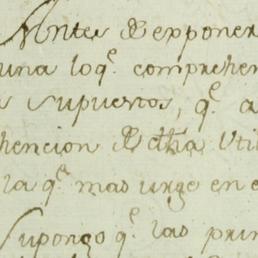 Antes de exponer
una loq.e comprehen
s supuestos, q.e a
hencion de dha Uti
la q.e mas urge en e
Supongo q.e las prin